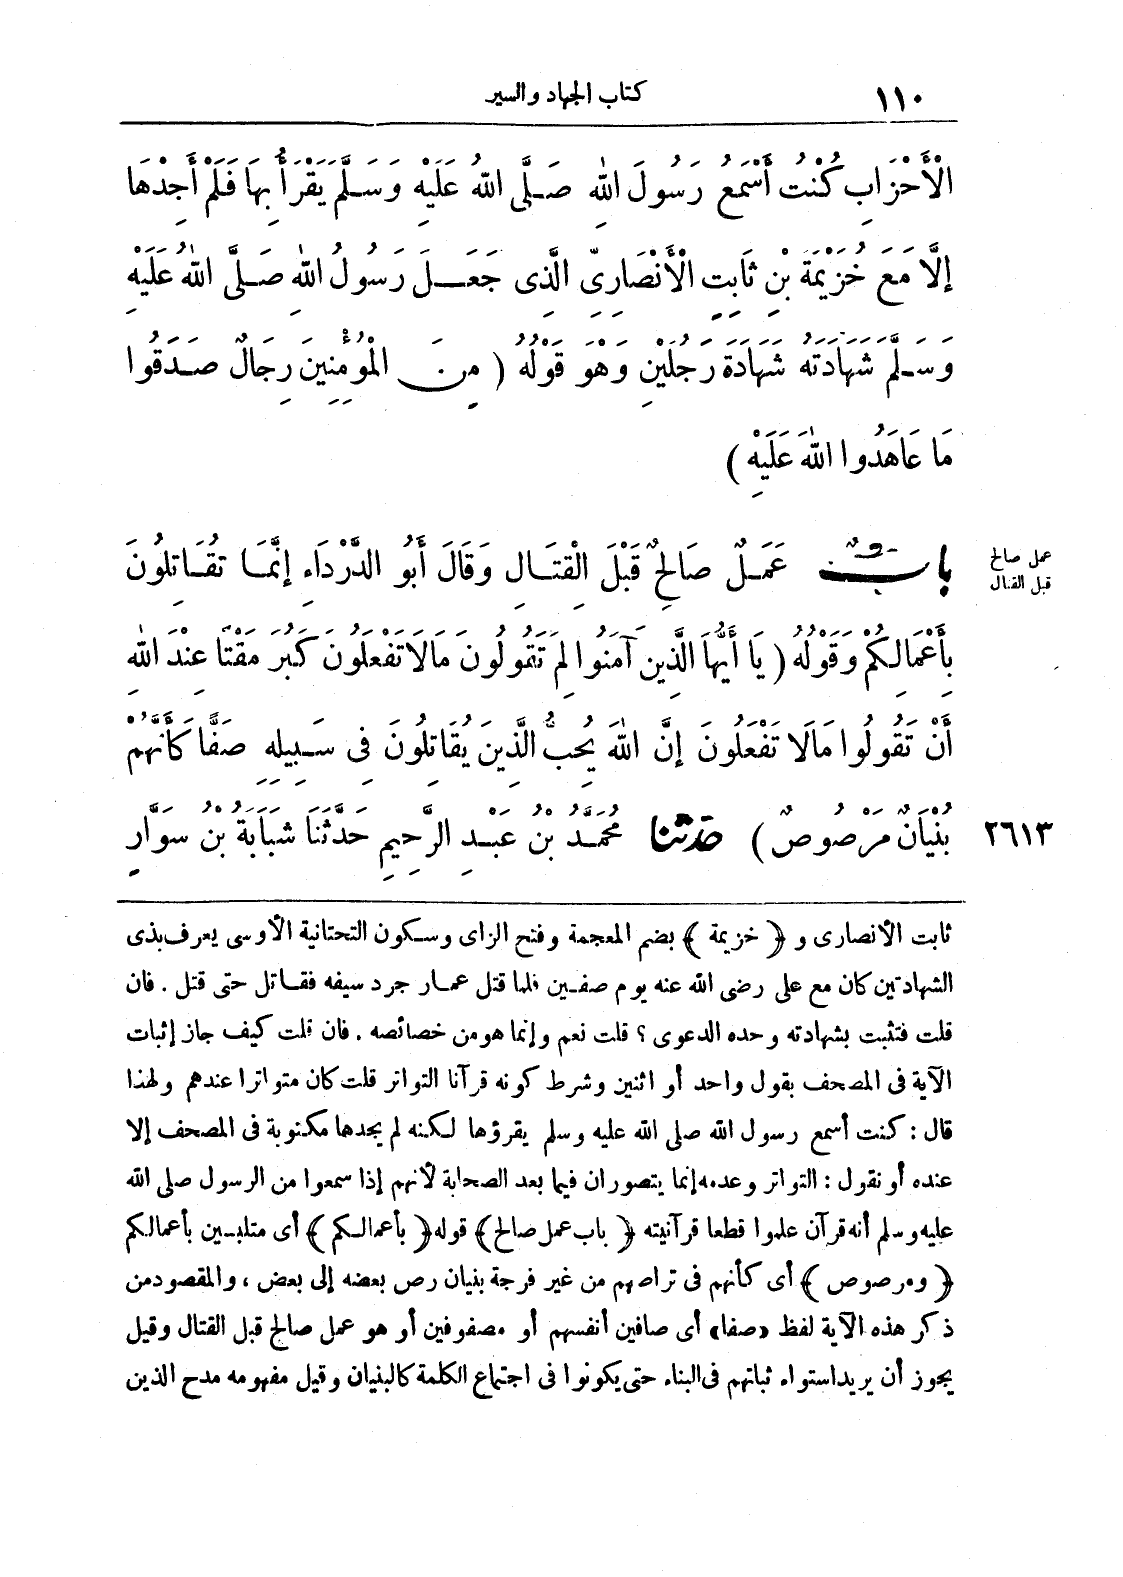 ١١٠ كتاب الجهاد والسير
الْأَحْزَابِ كُنْتُ أَسْمَعُ رَسُولَ اللهِ صَلَّى اللهُ عَلَيْهِ وَسَلَّمَ يَقْرَأُ بِهَا فَلَمْ أَجِدْهَا
إِلَّا مَعَ خُزَيْمَةَ بْنِ ثَابِتٍ الْأَنْصَارِىِّ الَّذِى جَعَلَ رَسُولُ اللهِ صَلَّى اللهُ عَلَيْهِ
وَسَلَّمَ شَهَادَتَهُ شَهَادَةَ رَجُلَيْنِ وَهُوَ قَوْلُهُ ( مِنَ الْمُؤْمِنِينَ رِجَالٌ صَدَقُوا
مَا عَاهَدُوا اللهَ عَلَيْهِ )
عمل صالح
قبل القتال
بابٌ عَمَلٌ صَالِحٌ قَبْلَ الْقِتَالِ وَقَالَ أَبُو الدَّرْدَاءِ إِنَّمَا تُقَاتِلُونَ
بِأَعْمَالِكُمْ وَقَوْلُهُ ( يَا أَيُّهَا الَّذِينَ آمَنُوا لِمَ تَقُولُونَ مَالَا تَفْعَلُونَ كَبُرَ مَقْتًا عِنْدَ اللهِ
أَنْ تَقُولُوا مَالَا تَفْعَلُونَ إِنَّ اللهَ يُحِبُّ الَّذِينَ يُقَاتِلُونَ فِى سَبِيلِهِ صَفًّا كَأَنَّهُمْ
٢٦١٣ بُنْيَانٌ مَرْصُوصٌ ) حدثنا مُحَمَّدُ بْنُ عَبْدِ الرَّحِيمِ حَدَّثَنَا شَبَابَةُ بْنُ سَوَّارٍ
ثابت الأنصارى و ﴿ خزيمة ﴾ بضم المعجمة وفتح الزاى وسكون التحتانية الأوسى يعرف بذى
الشهادتين كان مع على رضى الله عنه يوم صفين فلما قتل عمار جرد سيفه فقاتل حتى قتل . فان
قلت فتثبت بشهادته وحده الدعوى ؟ قلت نعم وإنما هو من خصائصه . فان قلت كيف جاز إثبات
الآية فى المصحف بقول واحد أو اثنين وشرط كونه قرآنا التواتر قلت كان متواترا عندهم ولهذا
قال : كنت أسمع رسول الله صلى الله عليه وسلم يقرؤها لكنه لم يجدها مكتوبة فى المصحف إلا
عنده أو نقول : التواتر وعدمه إنما يتصوران فيما بعد الصحابة لأنهم إذا سمعوا من الرسول صلى الله
عليه وسلم أنه قرآن علموا قطعا قرآنيته ﴿ باب عمل صالح ﴾ قوله ﴿ بأعمالكم ﴾ أى متلبسين بأعمالكم
﴿ ومرصوص ﴾ أى كأنهم فى تراصهم من غير فرجة بنيان رص بعضه إلى بعض ، والمقصود من
ذكر هذه الآية لفظ «صفا» أى صافين أنفسهم أو مصفوفين أو هو عمل صالح قبل القتال وقيل
يجوز أن يريد استواء ثباتهم فى البناء حتى يكونوا فى اجتماع الكلمة كالبنيان وقيل مفهومه مدح الذين